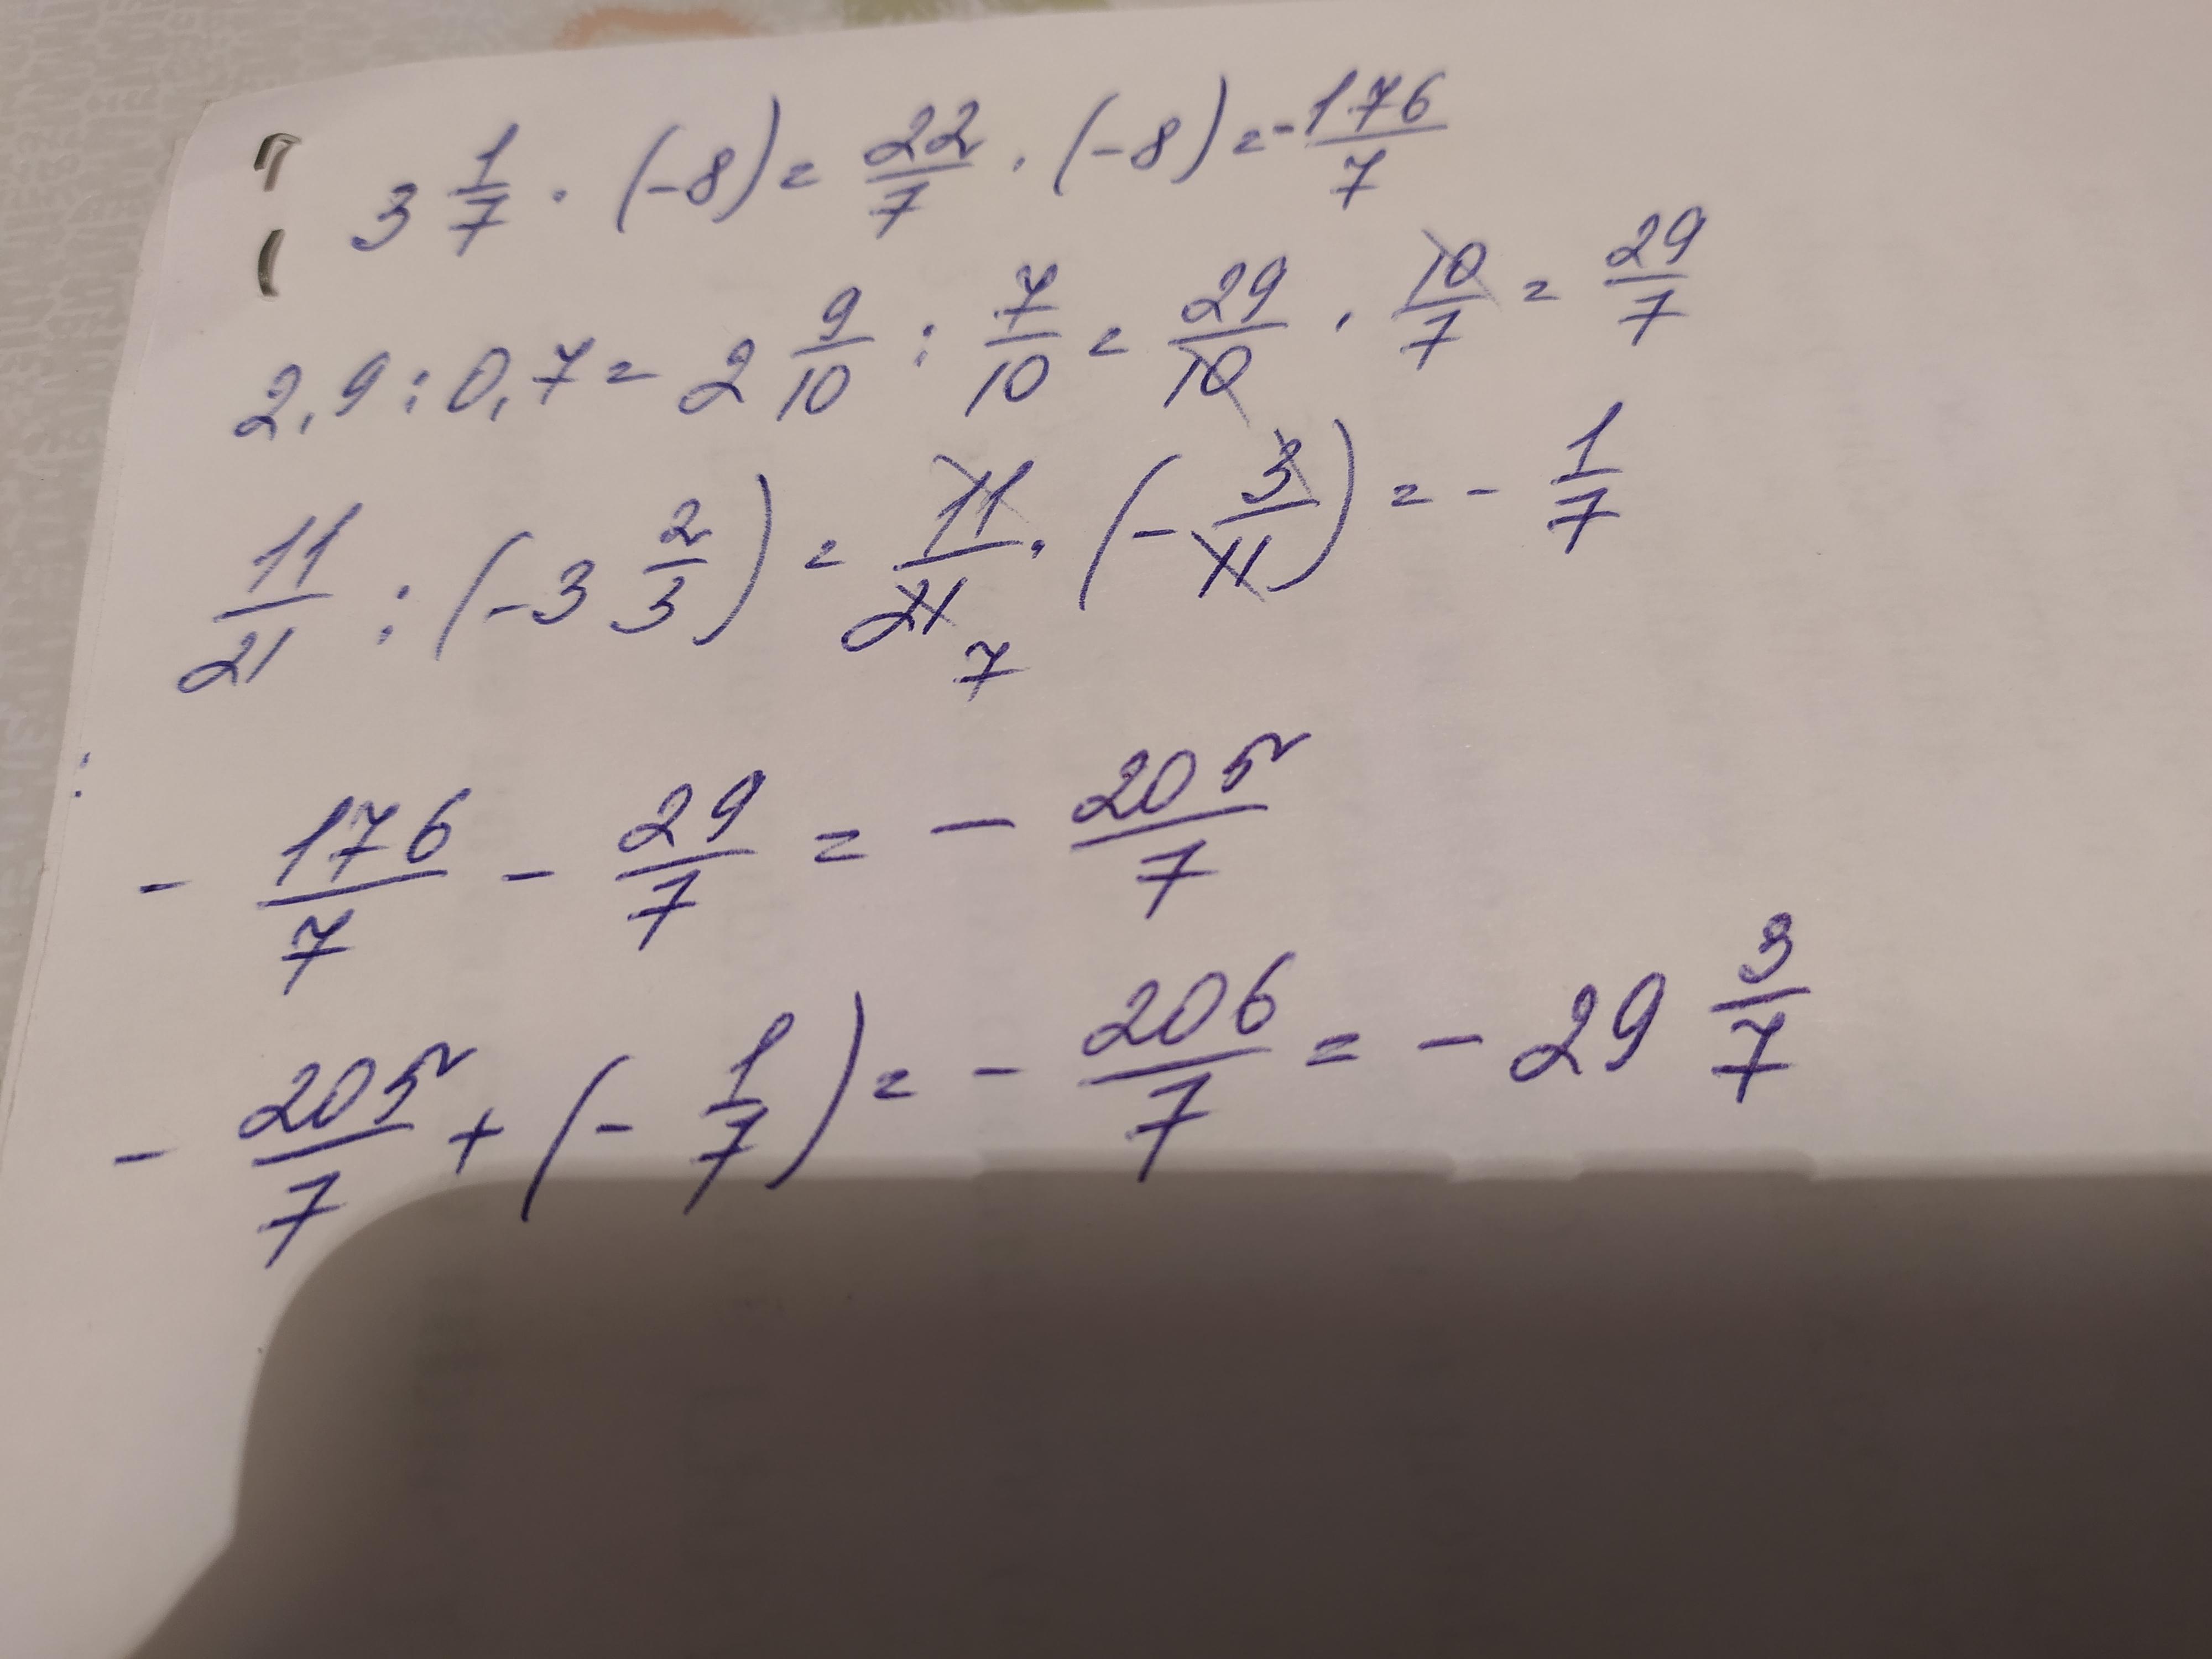 3 1/7 · (-8) = 22/7 · (-8) = - 176/7
2,9 : 0,7 = 2 9/10 : 7/10 = 29/10 · 10/7 = 29/7
11/21 : (-3 2/3) = 11/21 7 · (- 3/11) = - 1/7
- 176/7 - 29/7 = - 205/7
- 205/7 + (- 1/7) = - 206/7 = - 29 3/7